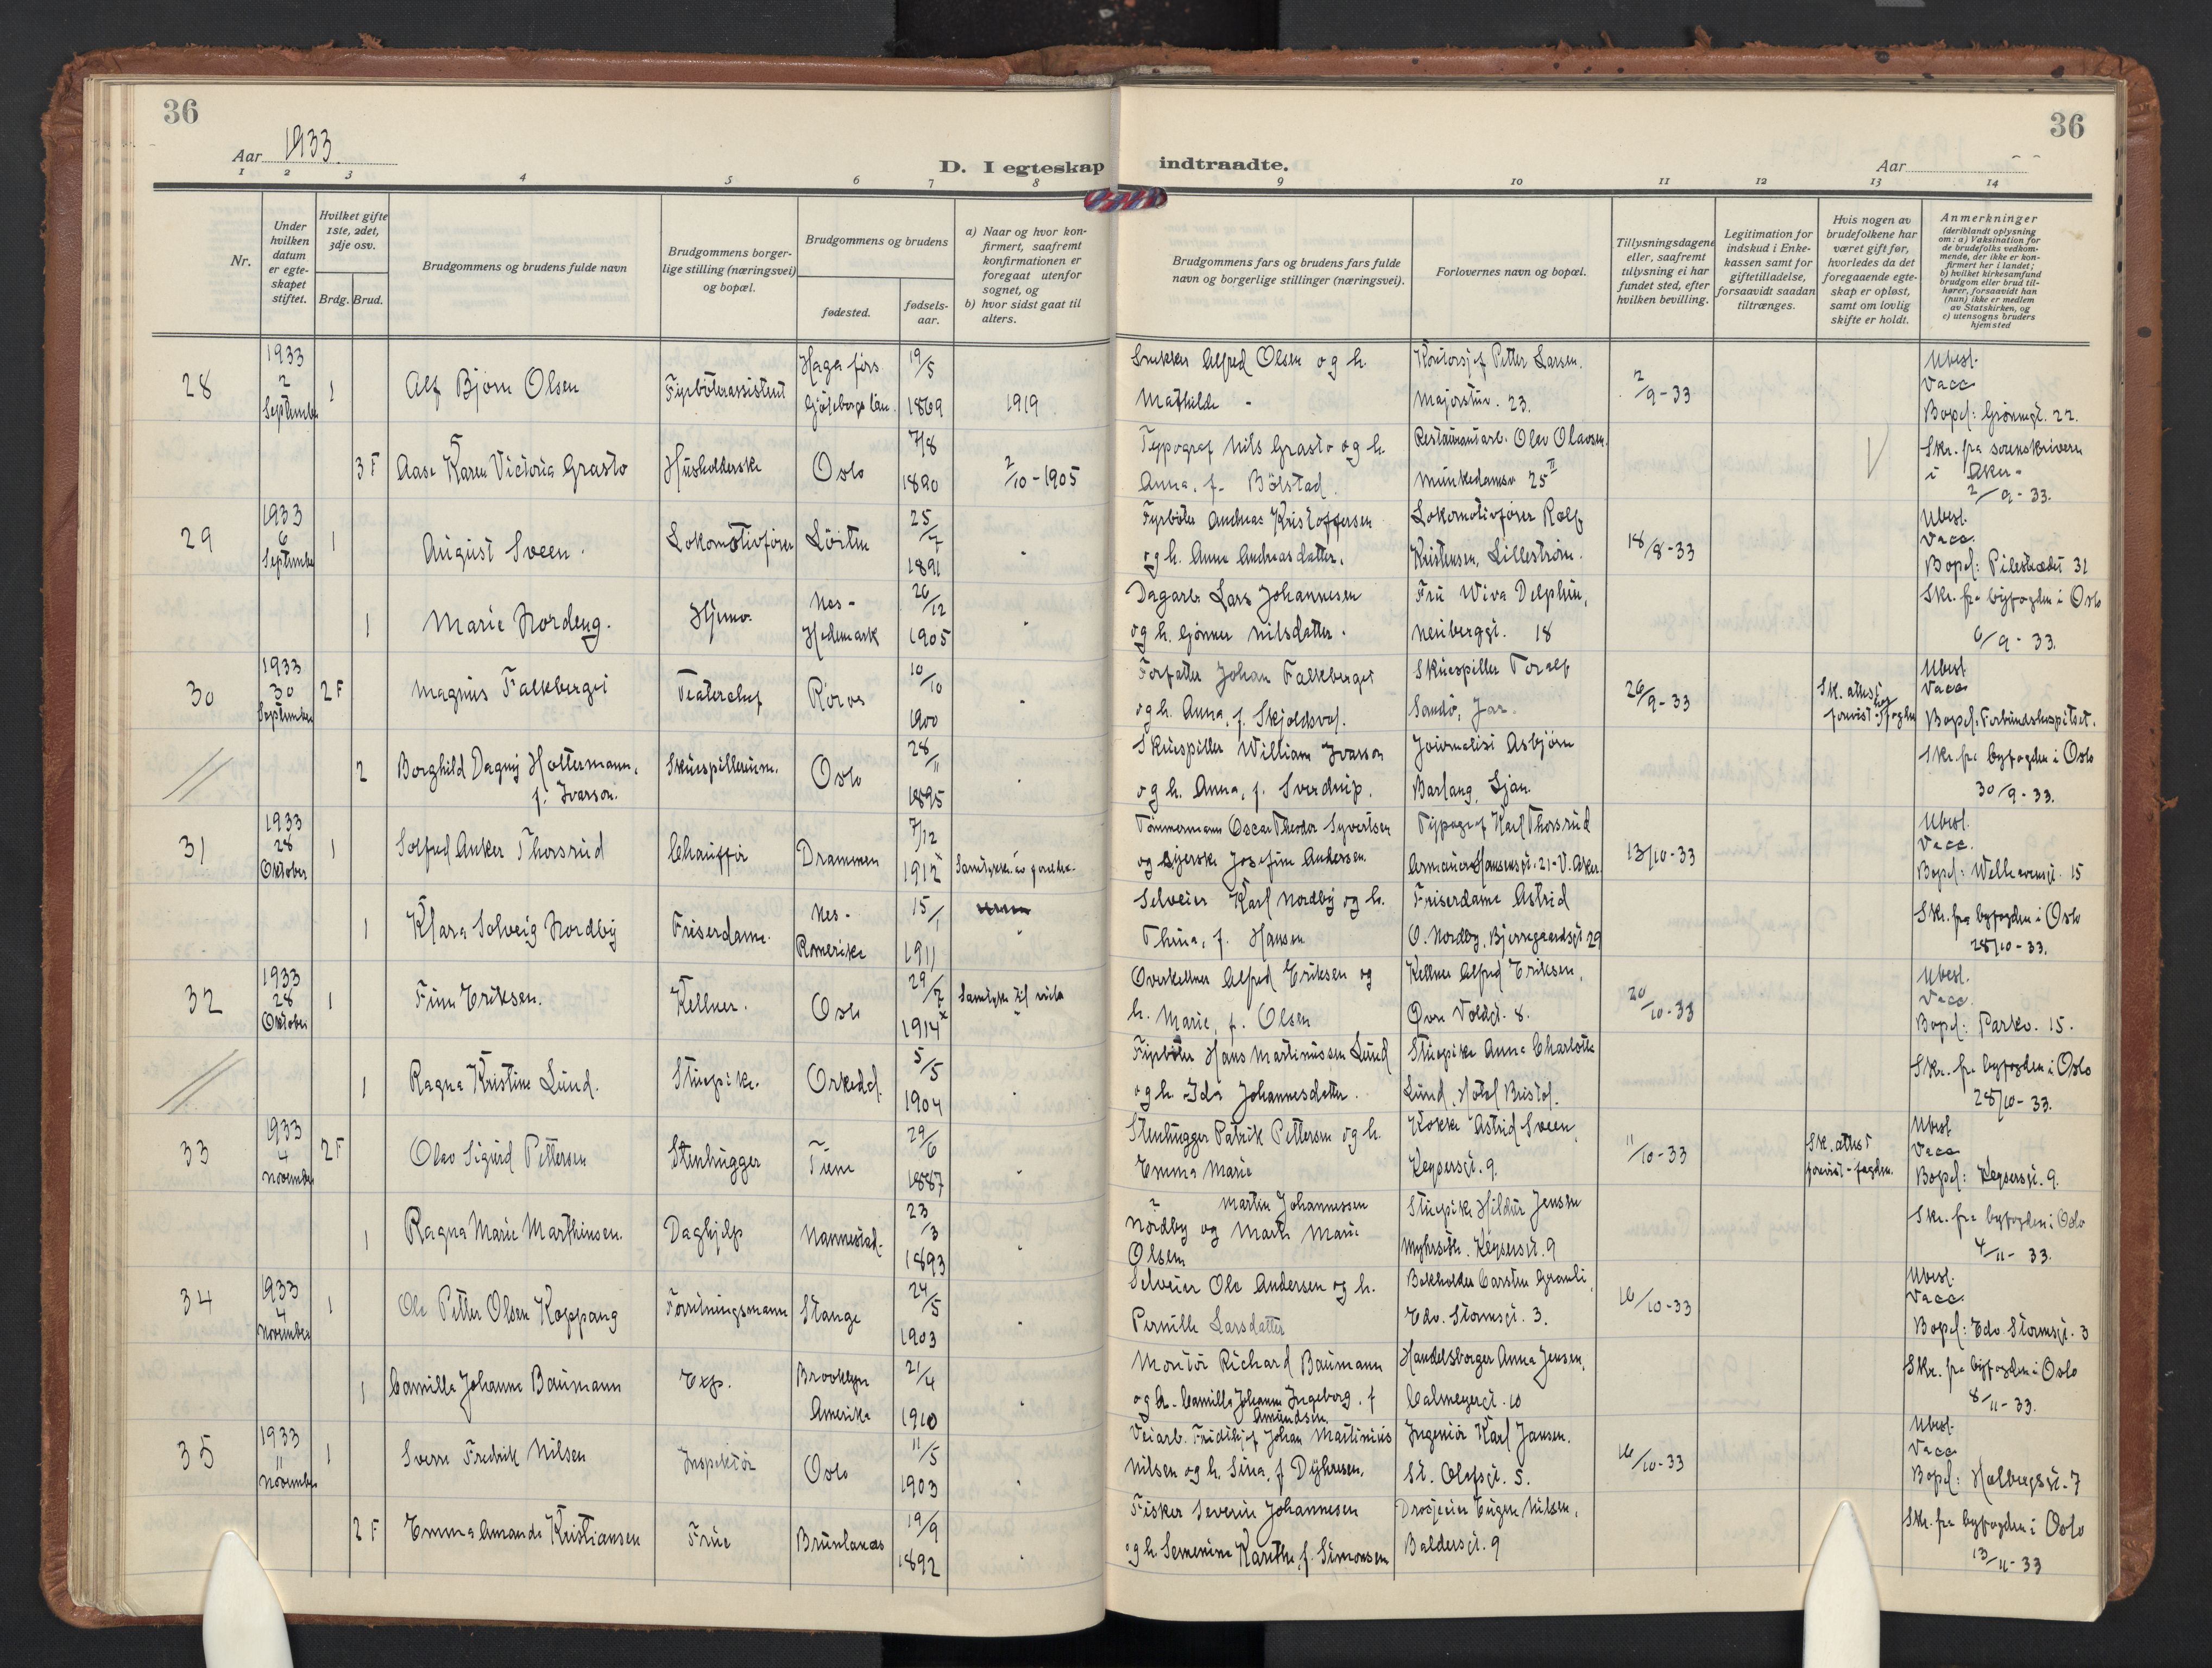 36
Aar 1933.
D. I egteskap
indtraadte.
Aar
36
1 2 3 4 5 6 7 8 9 10 11 12 13 14
Nr.
Under hvilken datum er egteskapet stiftet.
Hvilket gifte 1ste, 2det, 3dje osv.
Brdg. Brud.
Brudgommens og brudens fulde navn
Brudgommens borgerlige stilling (næringsvei) og bopæl.
Brudgommens og brudens
fødested.
fødselsaar.
a) Naar og hvor konfirmert, saafremt konfirmationen er foregaat utenfor sognet, og
b) hvor sidst gaat til alters.
Brudgommens fars og brudens fars fulde navn og borgerlige stillinger (næringsvei).
Forlovernes navn og bopæl.
Tillysningsdagene eller, saafremt tillysning ei har fundet sted, efter hvilken bevilling.
Legitimation for indskud i Enkekassen samt for giftetilladelse, forsaavidt saadan tiltrænges.
Hvis nogen av brudefolkene har været gift før, hvorledes da det foregaaende egteskap er opløst, samt om lovlig skifte er holdt.
Anmerkninger
(deriblandt oplysning om: a) Vaksination for de brudefolks vedkommende, der ikke er konfirmert her i landet; b) hvilket kirkesamfund brudgom eller brud tilhører, forsaavidt han (hun) ikke er medlem av Statskirken, og c) utensogns bruders hjemsted
28 1933 2 September 1 Alf Bjørn Olsen Fyrbøterassistent 19/5 1869 1919
Alfred Olsen og h. Mathilde Petter Larsen. Majorstuv. 23. 2/9-33 Ubesl. Vacc Bopel: Grønnegt. 22.
3 F Aase Karen Victoria Grasto Husholderske Oslo 7/8 1890 2/10-1905
Typograf Nils Grasto og h. Anna, f. Bölstad. Restaurantarb. Olav Olavsen. Munkedamsv 25 II Skr. fra sorenskriveren i Aker. 2/9-33.
29 1933 6 September 1 August Sveen. Lokomotivfører Löiten 25/7 1891
Fyrböter Andreas Kristoffersen og h. Anna Andreasdatter. Lokomotivfører Rolf Kristensen, Lillestrøm. 18/8-33 Ubesl. Vacc. Bopel: Pilestredet 31
1 Marie Nordeng. Hjemv. Nes - Hedemark 26/12 1905
Dagarb. Lars Johannesen og h. Gönner Nilsdatter. Fru Wiva Delphin, Neuberggt. 18 Skr. fra byfogden i Oslo 6/9-33.
30 1933 30 September 2 F Magnus Falkberget Teaterchef Röros 10/10 1900
Forfatter Johan Falkberget og h. Anna, f. Skjoldsvol. Skuespiller Toralf Sandø, Jar. 26/9-33 Sk. attest forevist Ubesl Vacc Bopel: Forbundshospitset.
2 Borghild Dagny Holtermann, f. Ivarson. Skuespillerinne. Oslo 28/11 1895
Skuespiller William Ivarson og h. Anna, f. Sverdrup. Journalist Asbjørn Barlaug, Ljan. Skr. fra byfogden i Oslo 30/9-33.
31 1933 28 Oktober 1 Solfred Anker Thorsrud Chauffør Drammen 7/12 1912 Samtykke av foreldre.
Tömmermann Oscar Theodor Syvertsen og Syerske Josefine Andersen Typograf Karl Thorsrud Armauer Hansensgt. 21-V. Aker 13/10-33 Ubesl. Vacc. Bopel: Welhavensgt. 15
1 Klara Solveig Nordby Friserdame. Nes - Romerike 15/1 1911
Selveier Karl Nordby og h. Thina, f. Hansen Friserdame Astrid O. Nordby, Bjerregaardsgt 29 Skr. fra byfogden i Oslo 28/10-33.
32 1933 28 Oktober 1 Finn Eriksen. Kellner. Oslo 29/7 1914 x Samtykke til
Overkellner Alfred Eriksen og h. Marie, f. Olsen Kellner Alfred Eriksen, Øvre Voldgt. 8. 20/10-33 Ubesl. Vacc. Bopel: Parkv. 15.
1 Ragna Kristine Lund. Stuepike. Orkedal 5/5 1904
Fyrböter Hans Martinussen Lund og h. Ida Johannesdatter. Stuepike Anna Charlotte Lund, Hotel Bristol. Skr. fra byfogden i Oslo 28/10-33.
33 1933 4 November 2 F Olav Sigurd Pettersen Stenhugger 29/6 1887
Stenhugger Patrik Pettersen og h. Emma Marie Kokke Astrid Sveen, Keysersgt. 9. 11/10-33 Sk. attest forevist - fogden. Ubesl Vacc Bopel: Keysersgt. 9.
1 Ragna Marie Marthinsen. Daghjelp Nannestad. 23/3 1893
? Martin Johannessen Nordby og Marte Marie Olsen Stuepike Hildur Jensen Keysersgt. 9 Skr. fra byfogden i Oslo 4/11-33.
34 1933 4 November 1 Ole Petter Olsen Koppang Forretningsmann Stange 24/5 1903
Selveier Ole Andersen og h. Pernille Larsdatter Bokholder Carsten Granli, Edv. Stormsgt. 3. 16/10-33 Ubesl. Vacc. Bopel: Edv. Stormsgt. 3
1 Camilla Johanne Baumann Exp. Brooklyn Amerika 21/4 1910
Montör Richard Baumann og h. Camilla Johanne Ingeborg. f Amundsen. Handelsborger Anna Jensen, Calmeyersgt. 10 Skr. fra byfogden i Oslo 8/11-33.
35 1933 11 November 1 Sverre Fredrik Nilsen Inspektör Oslo 11/5 1903
Veiarb. Fridthjof Johan Martinius Nilsen og h. Sina, f Dyhresen. Ingeniör Karl Jansen. St. Olafsgt. 5. 16/10-33 Ubesl. Vacc Bopel: Holbergsgt. 7
2 F Emma Amanda Kristiansen Frue Brunlanes 19/9 1892
Fisker Severin Johannesen og h. Semenine Karethe, f. Simonsen Drosjeeier Eugen Nilsen, Baldersgt. 9 Skr. fra byfogden i Oslo 13/11-33